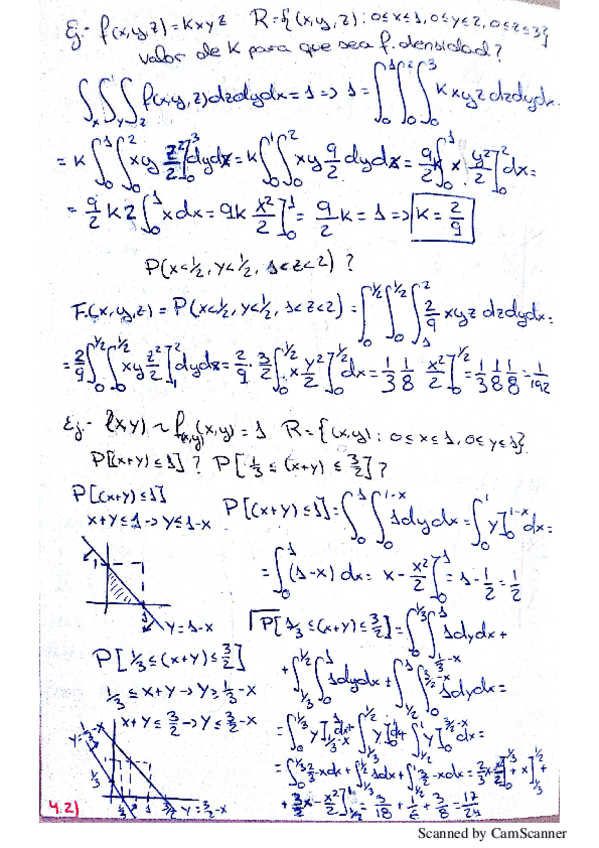 Ej.- f(x,y,z)=kxyz R={(x,y,z): 0≤x≤1, 0≤y≤2, 0≤z≤3}
valor de k para que sea f. densidad?
∫x∫y∫z f(x,y,z)dzdydx=1 => 1=∫₀¹∫₀²∫₀³ kxyz dzdydx.
=k∫₀¹∫₀² xy z²/2]₀³ dydx=k∫₀¹∫₀² xy 9/2 dydx=9/2 k∫₀¹ x y²/2]₀² dx=
=9/2 k 2∫₀¹ xdx=9k x²/2]₀¹=9/2 k=1 => k=2/9
P(x<1/2, y<1/2, 1<z<2)?
F(x,y,z)=P(x<1/2, y<1/2, 1<z<2)=∫₀^1/2∫₀^1/2∫₁² 2/9 xyz dzdydx=
=2/9∫₀^1/2∫₀^1/2 xy z²/2]₁² dydx=2/9·3/2∫₀^1/2 x y²/2]₀^1/2 dx=1/3 1/8 x²/2]₀^1/2=1/3 1/8 1/8=1/192
Ej.- (x,y)~f(x,y)(x,y)=1 R={(x,y): 0≤x≤1, 0≤y≤1}.
P[(x+y)≤1]? P[1/3≤(x+y)≤3/2]?
P[(x+y)≤1]
x+y≤1->y≤1-x
P[(x+y)≤1]=∫₀¹∫₀^1-x 1dydx=∫₀¹ y]₀^1-x dx=
=∫₀¹(1-x)dx=x-x²/2]₀¹=1-1/2=1/2
1
1
y=1-x
P[1/3≤(x+y)≤3/2]=∫₀^1/3∫_1/3-x^1 1dydx+
+∫_1/3^1/2∫₀¹ 1dydx+∫_1/2^1∫₀^3/2-x 1dydx=
P[1/3≤(x+y)≤3/2]
1/3≤x+y->y≥1/3-x
x+y≤3/2->y≤3/2-x
=∫₀^1/3 y]_1/3-x^1 dx+∫_1/3^1/2 y]₀¹dx+∫_1/2^1 y]₀^3/2-x dx=
=∫₀^1/3 2/3-xdx+∫_1/3^1/2 1dx+∫_1/2^1 3/2-xdx=2/3x x²/2]₀^1/3+x]_1/3^1/2+
+3/2x-x²/2]_1/2^1=3/18+1/6+3/8=17/24
y=1/3-x
1/3
1/3
1
3/2
y=3/2-x
4.2)
Scanned by CamScanner